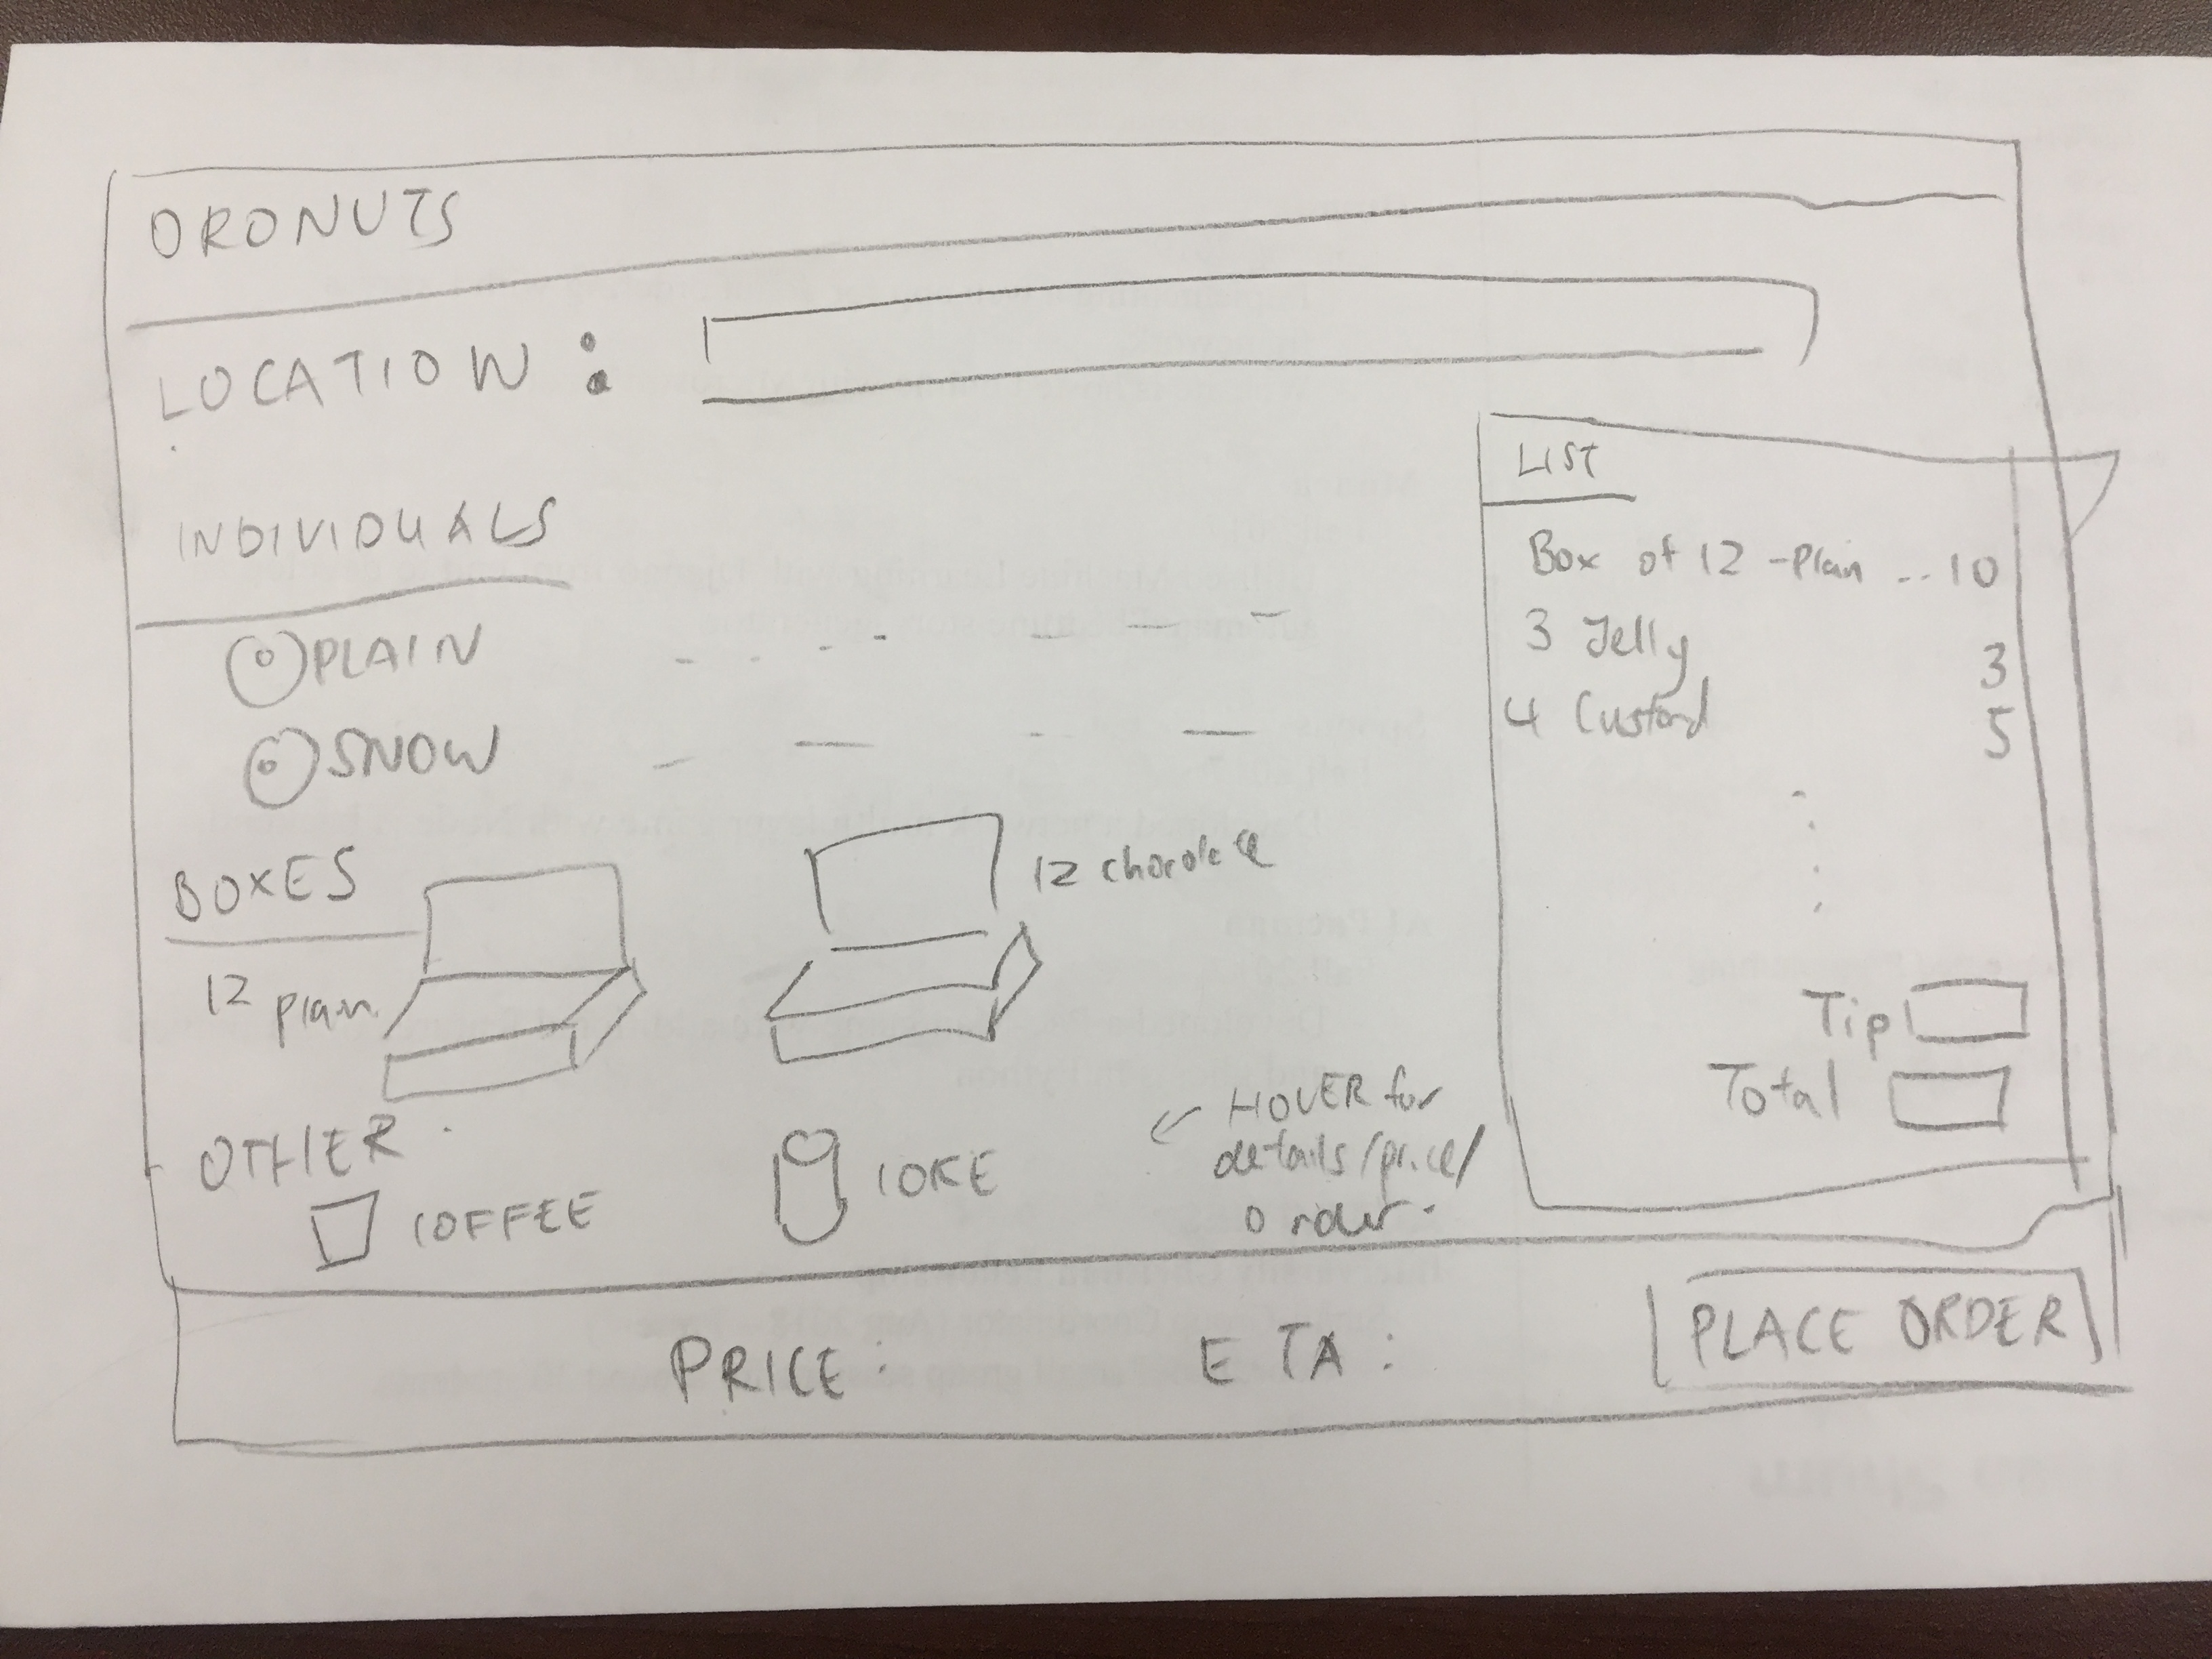 DRONUTS
LOCATION :
INDIVIDUALS
PLAIN
SNOW
BOXES
12 plain
12 chocolate
OTHER
COFFEE
COKE
← HOVER for
details/price/
order.
LIST
Box of 12 -Plain ... 10
3 Jelly 3
4 Custard 5
Tip
Total
PRICE: ETA: PLACE ORDER